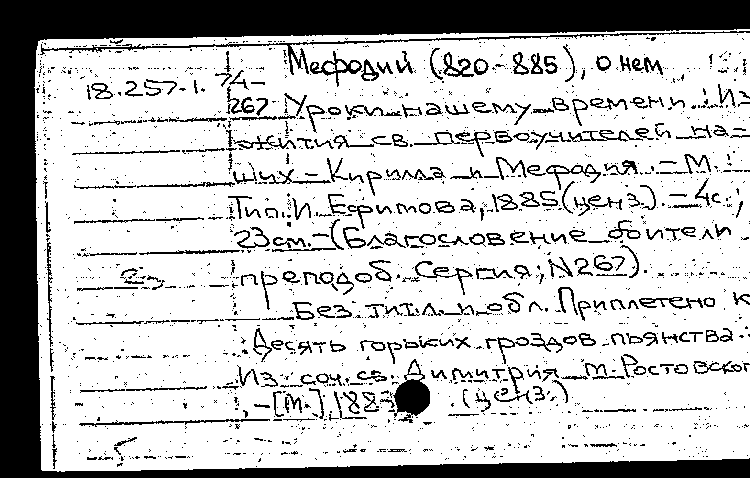 Мефодий (820-885), о нем
18.257.1.74-
267 Уроки нашему времени: Из
жития св. первоучителей на-
ших - Кирилла и Мефодия. - М.:
Тип. И. Ефимова, 1885 (ценз.). - 4с.;
23см. - (Благословение обители
преподоб. Сергия; N267).
Без тит.л. и обл. Приплетено к
Десять горьких гроздов пьянства.
Из соч. св. Димитрия м. Ростовског
, - [М.], 188 (ценз.)